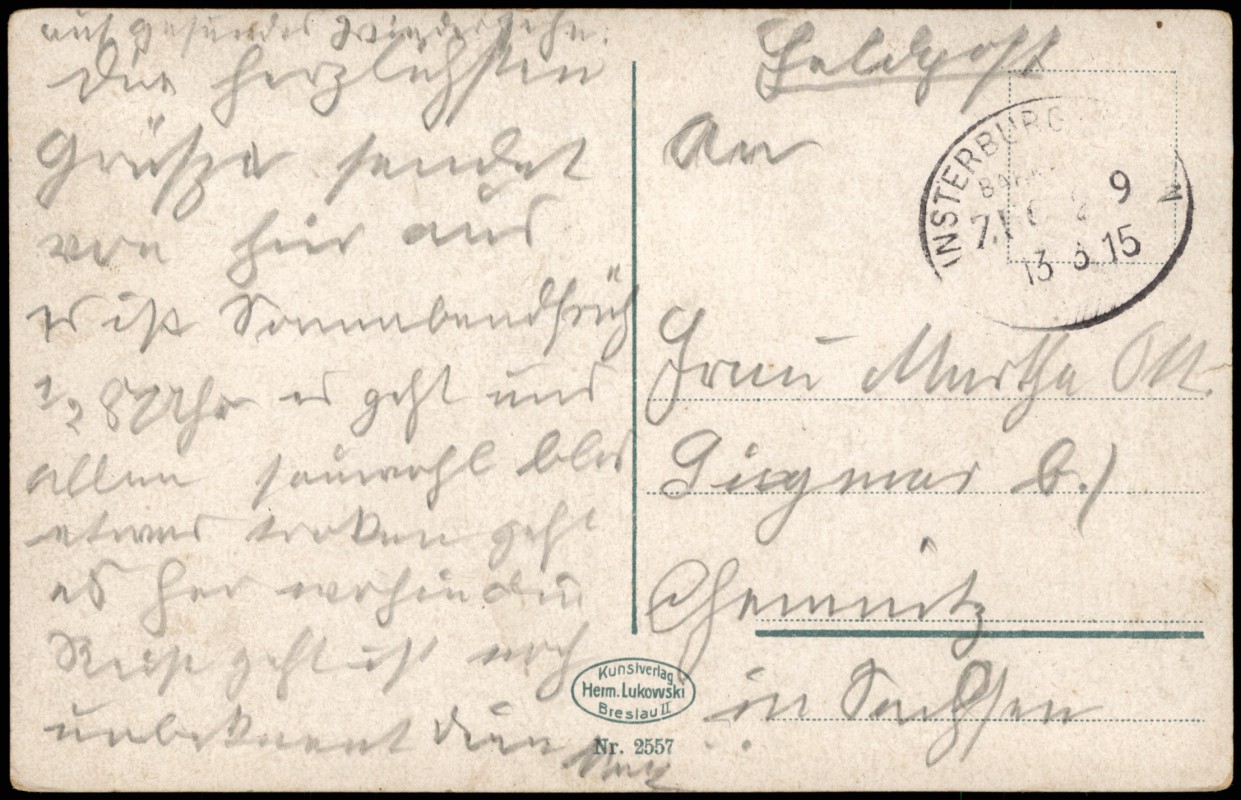 auf gesundes Wiedersehn.
Die herzlichsten
Grüsze sendet
von hier aus
es ist Sonnabendfrüh
1/2 8 Uhr es geht uns
allen sauwohl blos
etwas troken geht
es her wohin die
Reise geht ist noch
unbekannt dein
Max
Feldpost
An
INSTERBURG
13 3.15
Frau Martha Ott.
Siegmar b./
Chemnitz
in Sachsen
Kunstverlag
Herm. Lukowski
Breslau II
Nr. 2557